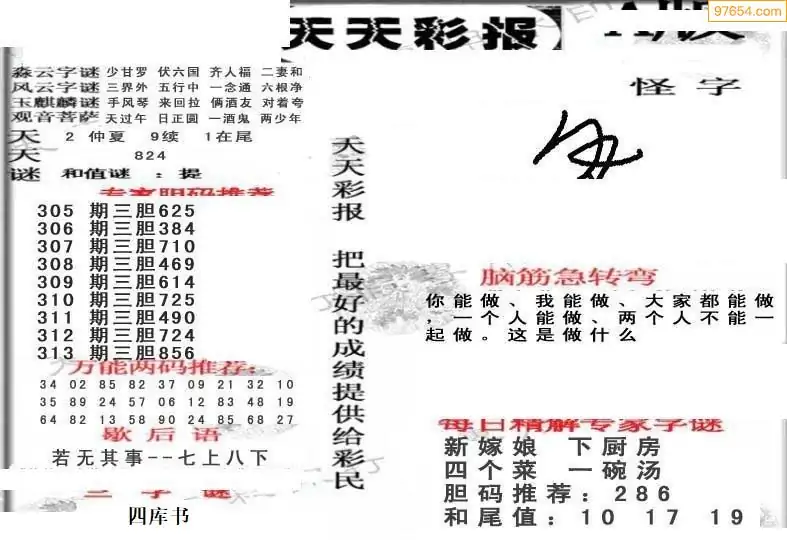 97654.com
天天彩报
A版
淼云字谜 少甘罗 伏六国 齐人福 二妻和
风云字谜 三界外 五行中 一念通 六根净
玉麒麟谜 手风琴 来回拉 俩酒友 对着夸
观音菩萨 天过午 日正圆 一酒鬼 两少年
天 2 仲夏 9续 1在尾
天 824
谜 和值谜 : 提
专家胆码推荐
305 期三胆625
306 期三胆384
307 期三胆710
308 期三胆469
309 期三胆614
310 期三胆725
311 期三胆490
312 期三胆724
313 期三胆856
万能两码推荐:
34 02 85 82 37 09 21 32 10
35 89 24 57 06 12 83 48 19
64 82 13 58 90 24 85 68 27
歇后语
若无其事--七上八下
三字谜
四库书
天天彩报 把最好的成绩提供给彩民
怪字
脑筋急转弯
你能做、我能做、大家都能做
,一个人能做、两个人不能一
起做。这是做什么
每日精解专家字谜
新嫁娘 下厨房
四个菜 一碗汤
胆码推荐:286
和尾值:10 17 19